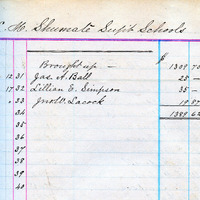 H. Shumate Supt Schools
$
Brought up — 1309 70
12 31 Jas. A. Ball 25 —
17 32 Lillian E. Simpson 35 —
" 33 Jno. W. Lacock 19 
34 1389 62
35
36
37
38
39
40